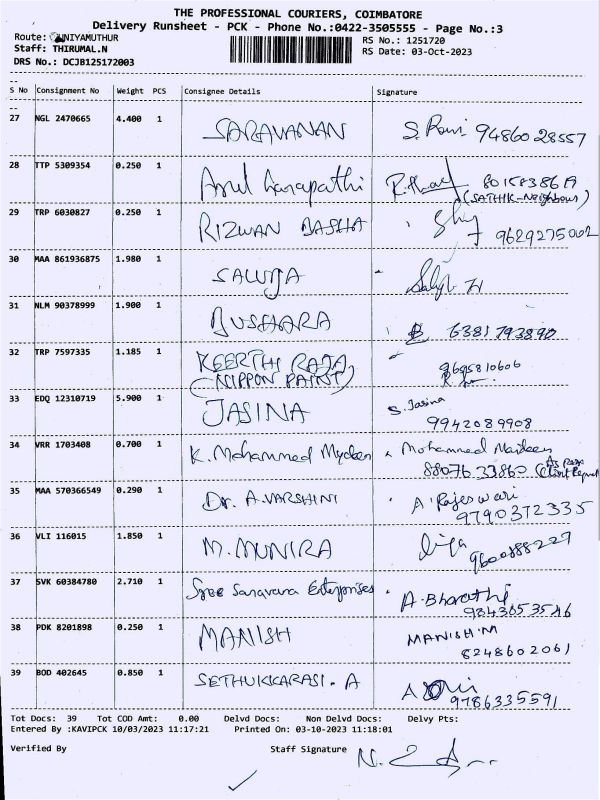 THE PROFESSIONAL COURIERS, COIMBATORE
Delivery Runsheet - PCK - Phone No.:0422-3505555 - Page No.:3
Route: UNIYAMUTHUR
RS No.: 1251720
Staff: THIRUMAL.N
RS Date: 03-Oct-2023
DRS No.: DCJB125172003
S No Consignment No Weight PCS Consignee Details Signature
27 NGL 2470665 4.400 1 SARAVANAN S. Ravi 9486028557
28 TTP 5309354 0.250 1 Arul Ganapathi
(SATHIK-Neighbour)
29 TRP 6030827 0.250 1 RIZWAN BASHA 9629275002
30 MAA 861936875 1.980 1 SALUJA
31 NLM 90378999 1.900 1 BUSHARA 6381793890
32 TRP 7597335 1.185 1 KEERTHI RAJA 9695810606
(NIPPON PAINT)
33 EDQ 12310719 5.900 1 JASINA S. Jasina
9942089908
34 VRR 1703408 0.700 1 K. Mohammed Mydeen Mohammed
88076 33860
35 MAA 570366549 0.290 1 Dr. A.VARSHINI A. Rajeswari
9790372335
36 VLI 116015 1.850 1 M. MUNIRA 9600888227
37 SVK 60384780 2.710 1 Sree Saravana Enterprises A. Bharathi
9843653546
38 PDK 8201898 0.250 1 MANISH MANISH.M
8248602061
39 BOD 402645 0.850 1 SETHUKKARASI. A
9786335591
Tot Docs: 39 Tot COD Amt: 0.00 Delvd Docs: Non Delvd Docs: Delvy Pts:
Entered By :KAVIPCK 10/03/2023 11:17:21 Printed On: 03-10-2023 11:18:01
Verified By Staff Signature